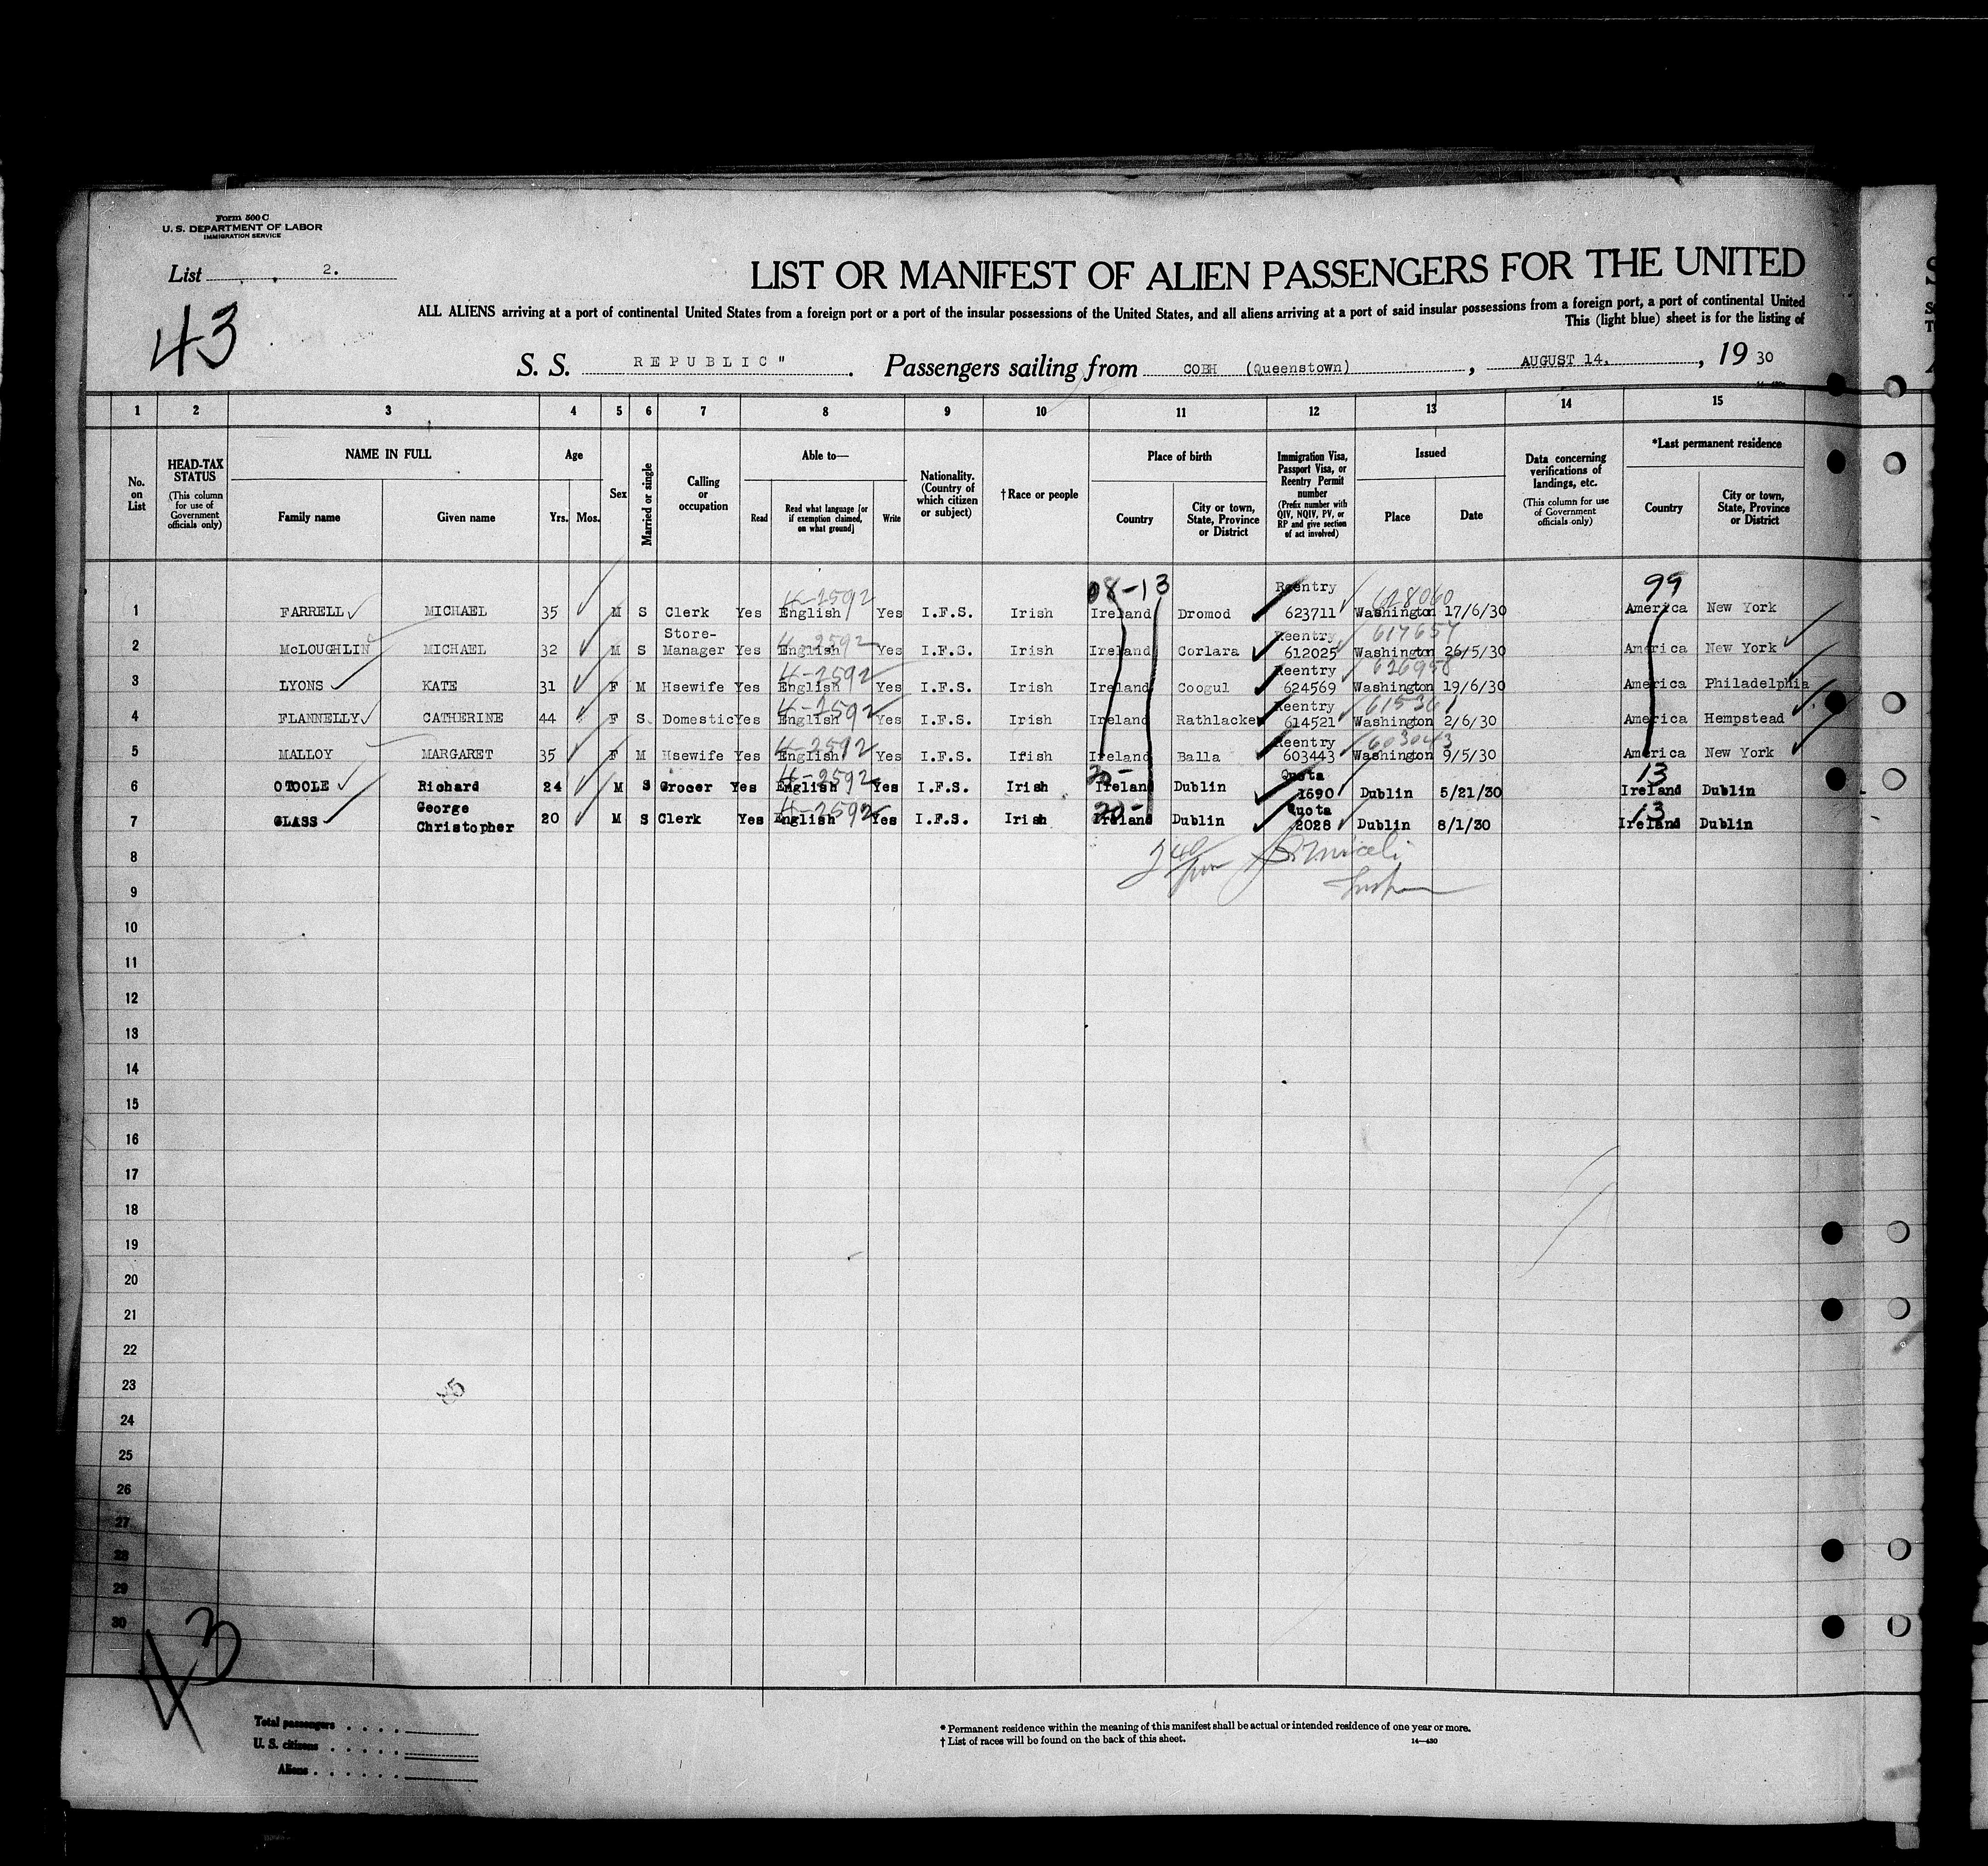 Form 500 C
U. S. DEPARTMENT OF LABOR
IMMIGRATION SERVICE
List 2.
43
LIST OR MANIFEST OF ALIEN PASSENGERS FOR THE UNITED
ALL ALIENS arriving at a port of continental United States from a foreign port or a port of the insular possessions of the United States, and all aliens arriving at a port of said insular possessions from a foreign port, a port of continental United
This (light blue) sheet is for the listing of
S. S. REPUBLIC". Passengers sailing from COBH (Queenstown), AUGUST 14., 19 30
1 2 3 4 5 6 7 8 9 10 11 12 13 14 15
No. on List
HEAD-TAX STATUS (This column for use of Government officials only)
NAME IN FULL
Family name Given name
Age
Yrs. Mos.
Sex
Married or single
Calling or occupation
Able to—
Read Read what language [or if exemption claimed, on what ground] Write
Nationality. (Country of which citizen or subject)
†Race or people
Place of birth
Country City or town, State, Province or District
Immigration Visa, Passport Visa, or Reentry Permit number (Prefix number with QIV, NQIV, PV, or RP and give section of act involved)
Issued
Place Date
Data concerning verifications of landings, etc. (This column for use of Government officials only)
*Last permanent residence
Country City or town, State, Province or District
4-2592 08-13 Reentry 628060 99
1 FARRELL MICHAEL 35 M S Clerk Yes English Yes I.F.S. Irish Ireland Dromod 623711 Washington 17/6/30 America New York
Store- 4-2592 Reentry 617657
2 McLOUGHLIN MICHAEL 32 M S Manager Yes English Yes I.F.S. Irish Ireland Corlara 612025 Washington 26/5/30 America New York
4-2592 Reentry 626958
3 LYONS KATE 31 F M Hsewife Yes English Yes I.F.S. Irish Ireland Coogul 624569 Washington 19/6/30 America Philadelphia
4-2592 Reentry 61536
4 FLANNELLY CATHERINE 44 F S Domestic Yes English Yes I.F.S. Irish Ireland Rathlacke 614521 Washington 2/6/30 America Hempstead
4-2592 Reentry 603043
5 MALLOY MARGARET 35 F M Hsewife Yes English Yes I.F.S. Irish Ireland Balla 603443 Washington 9/5/30 America New York
4-2592 20- Quota 13
6 OTOOLE Richard 24 M S Grocer Yes English Yes I.F.S. Irish Ireland Dublin 1690 Dublin 5/21/30 Ireland Dublin
George 4-2592 20- Quota 13
7 GLASS Christopher 20 M S Clerk Yes English Yes I.F.S. Irish Ireland Dublin 2028 Dublin 8/1/30 Ireland Dublin
8
9
10
11
12
13
14
15
16
17
18
19
20
21
22
23
24
25
26
27
28
29
30
43
Total passengers
U. S. citizens
Aliens
* Permanent residence within the meaning of this manifest shall be actual or intended residence of one year or more.
† List of races will be found on the back of this sheet.
14—430